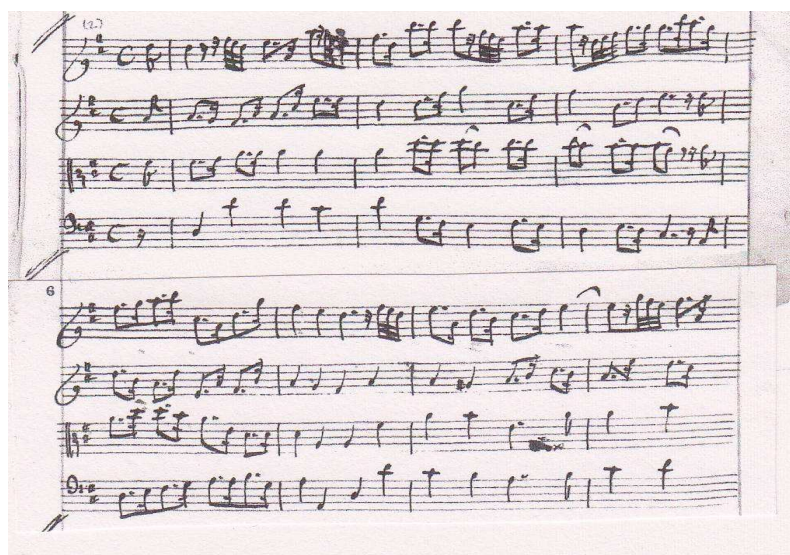 (2.)
6